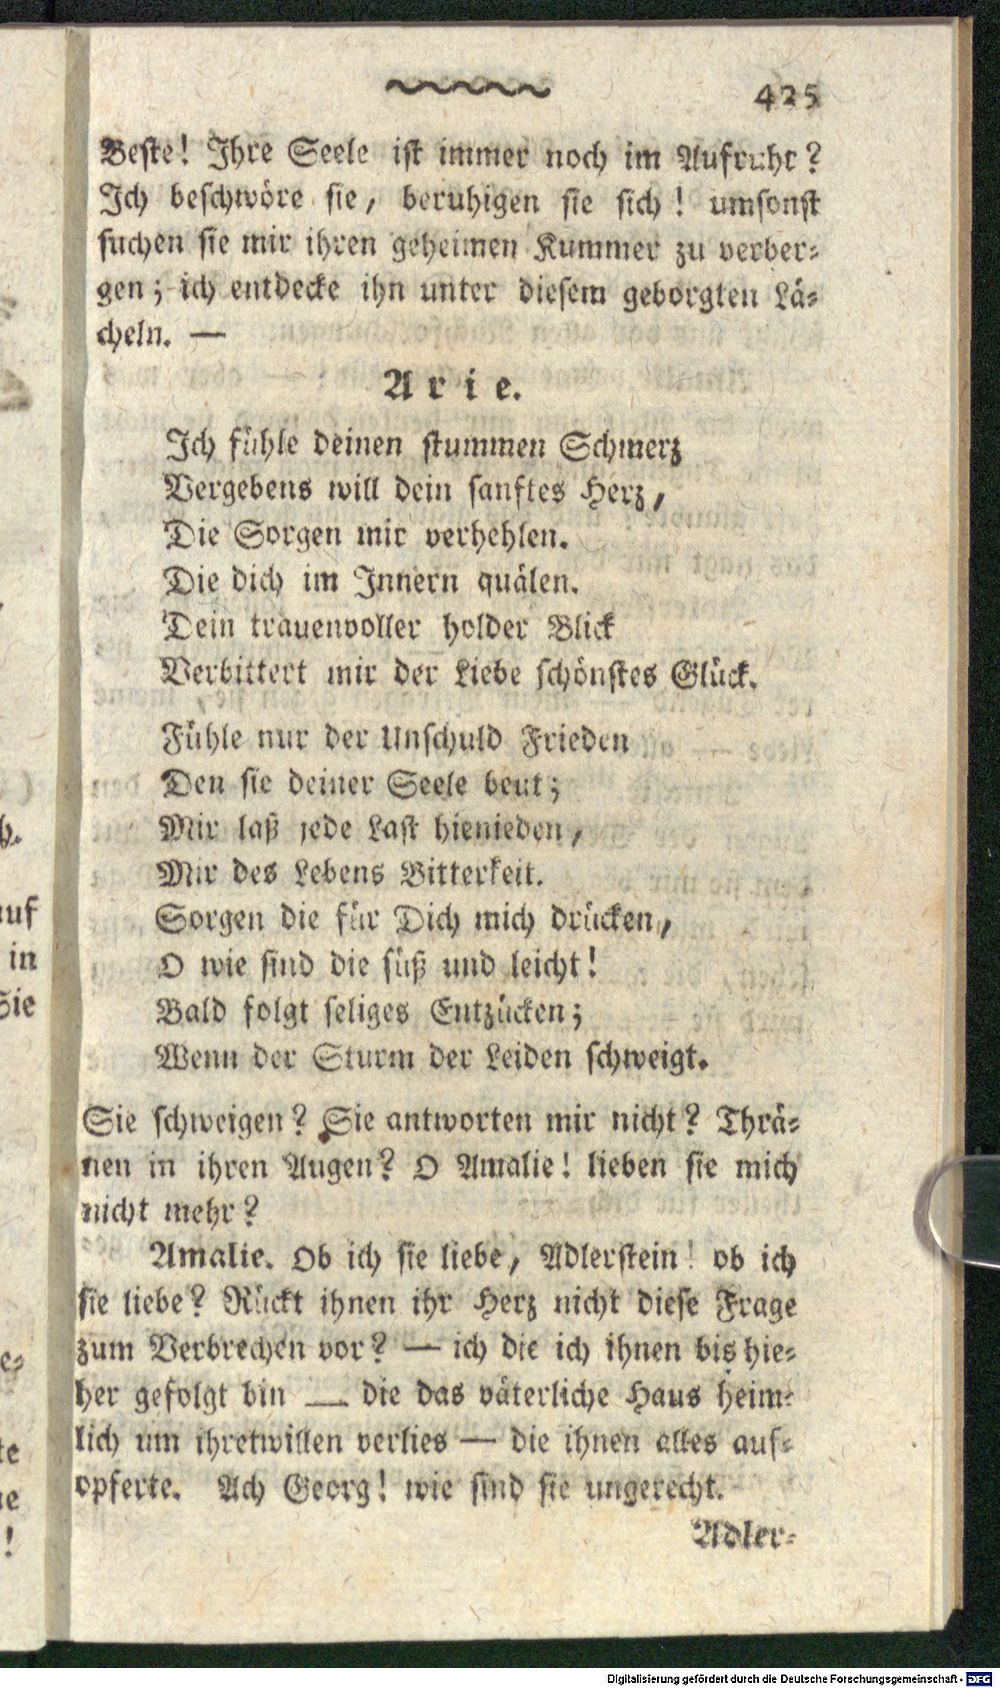 425
Beste! Ihre Seele ist immer noch im Aufruhr?
Ich beschwöre sie, beruhigen sie sich! umsonst
suchen sie mir ihren geheimen Kummer zu verber-
gen; ich entdecke ihn unter diesem geborgten Lä-
cheln. —
Arie.
Ich fühle deinen stummen Schmerz
Vergebens will dein sanftes Herz,
Die Sorgen mir verhehlen.
Die dich im Innern quälen.
Dein trauenvoller holder Blick
Verbittert mir der Liebe schönstes Glück.
Fühle nur der Unschuld Frieden
Den sie deiner Seele beut;
Mir laß jede Last hienieden,
Mir des Lebens Bitterkeit.
Sorgen die für Dich mich drücken,
O wie sind die süß und leicht!
Bald folgt seliges Entzücken;
Wenn der Sturm der Leiden schweigt.
Sie schweigen? Sie antworten mir nicht? Thrä-
nen in ihren Augen? O Amalie! lieben sie mich
nicht mehr?
Amalie. Ob ich sie liebe, Adlerstein! ob ich
sie liebe? Rückt ihnen ihr Herz nicht diese Frage
zum Verbrechen vor? — ich die ich ihnen bis hie-
her gefolgt bin — die das väterliche Haus heim-
lich um ihretwillen verlies — die ihnen alles auf-
opferte. Ach Georg! wie sind sie ungerecht.
Adler-
uf
in
Sie
e-
te
ne
!
Digitalisierung gefördert durch die Deutsche Forschungsgemeinschaft - DFG